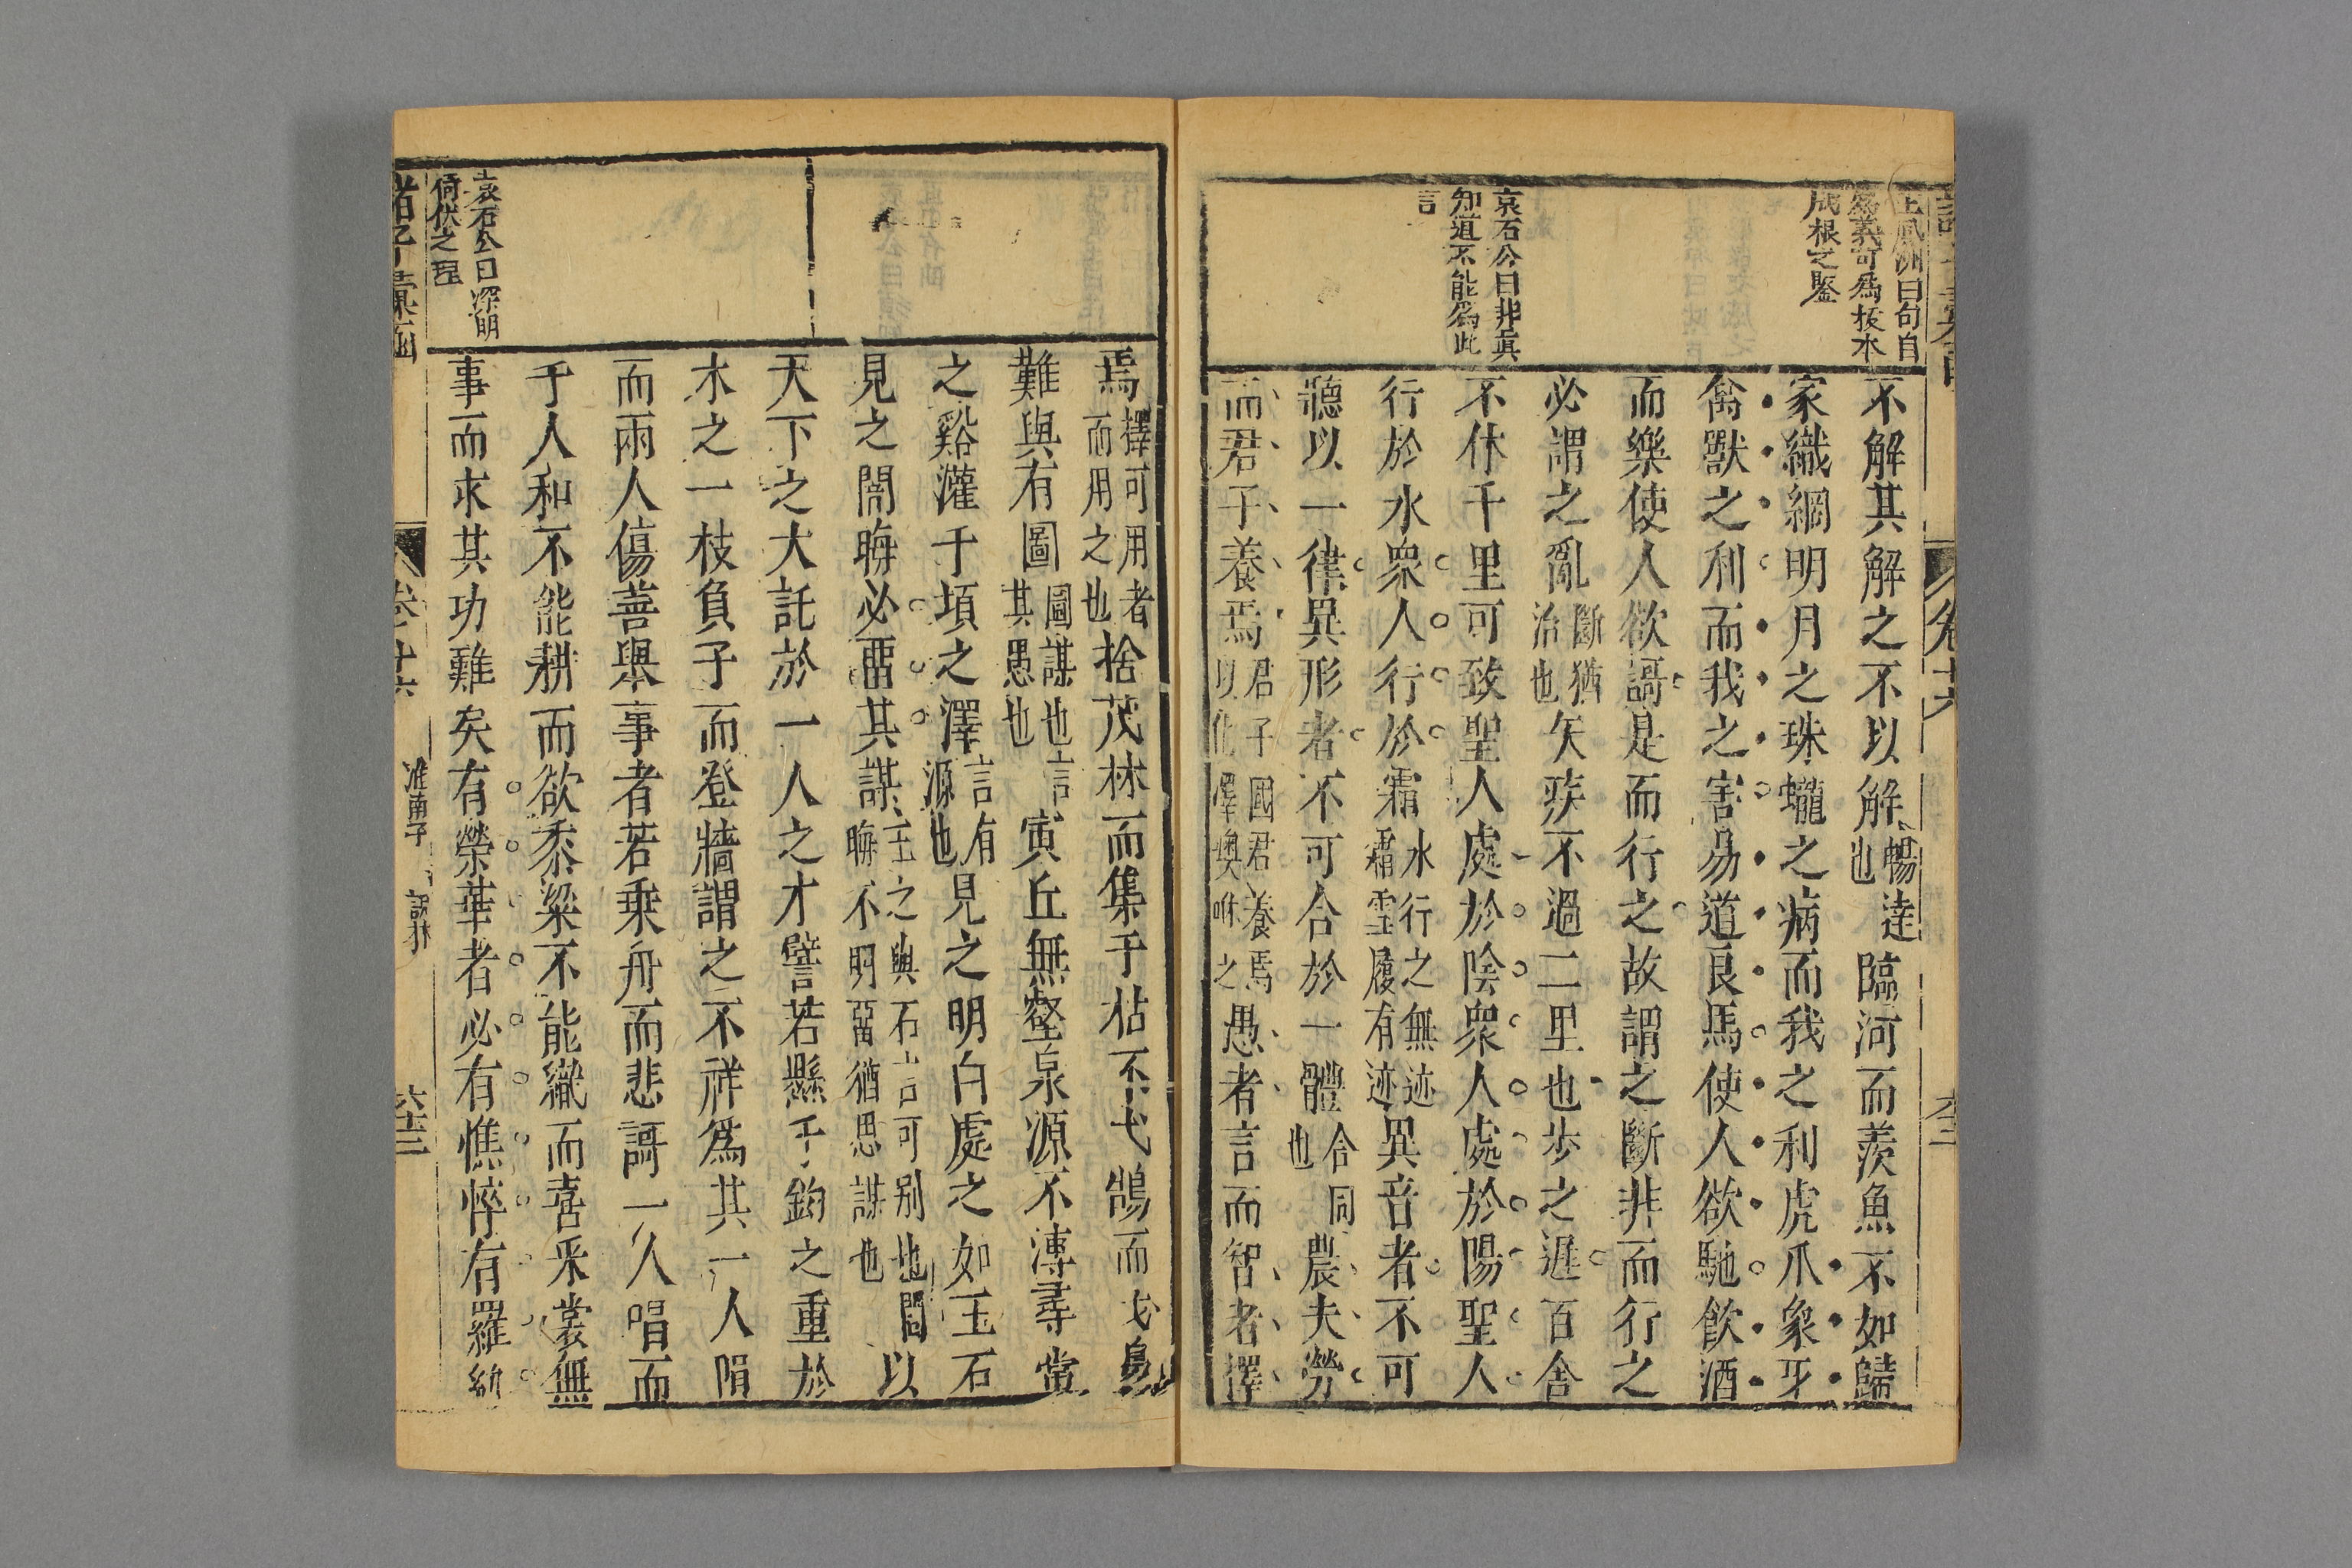 王鳳洲曰句自
爲義可爲接水
成根之鑒
袁石公曰非眞
知道不能爲此
言
不解其解之不以解暢達也臨河而羨魚不如歸
家織網明月之珠蠬之病而我之利虎爪象牙
禽獸之利而我之害易道良馬使人欲馳飲酒
而樂使人欲謌是而行之故謂之斷非而行之
必謂之亂斷猶治也矢疾不過二里也步之遲百舍
不休千里可致聖人處於陰衆人處於陽聖人
行於水衆人行於霜水行之無迹霜雪履有迹異音者不可
聽以一律異形者不可合於一體合同也農夫勞
而君子養焉君子國君養焉以化澤燠咻之愚者言而智者擇
焉擇可用者而用之也捨茂林而集于枯不弋鵠而弋烏
難與有圖圖謀也言其愚也寅丘無壑泉源不溥尋常
之谿灌千頃之澤言有源也見之明白處之如玉石
見之闇晦必畱其謀玉之與石言可别也闇晦不明畱猶思謀也以
天下之大託於一人之才譬若懸千鈞之重於
木之一枝負子而登牆謂之不祥爲其一人隕
而兩人傷善舉事者若乗舟而悲謌一人唱而
千人和不能耕而欲黍粱不能織而喜采裳無
事而求其功難矣有榮華者必有憔悴有羅紈
袁石公曰深明
倚伏之理
諸子彙函
卷十六
淮南子
說林
六十三